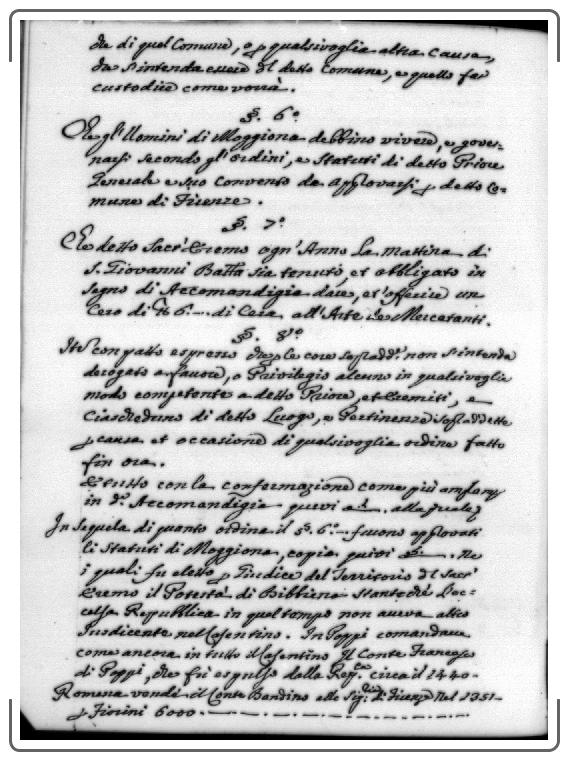 che di quel Comune, o p qualsivoglia altra causa,
da s'intenda essere del detto Comune, e quello far
custodire come vorrà.
§. 6.º
Che gl'Uomini di Moggiona debbino vivere, e gover-
narsi secondo gl'ordini, e statuti di detto Priore
Generale e suo Convento da Approvarsi p detto Co-
mune di Firenze.
§. 7.º
Che detto Sacr'Eremo ogn'Anno La mattina di
S. Giovanni Batta sia tenuto, et obbligato in
segno di Accomandigia dare, et offerire un
Cero di lb 6.- di Cera all'Arte de Mercatanti.
§. 8.º
Ite con patto espresso che p le cose sopradd.e non s'intenda
derogato a favore, o Privilegio alcuno in qualsivoglia
modo competente a detto Priore, et Eremiti, e
Ciascheduno di detto Luogo, e Pertinenze sopraddette
p causa et occasione di qualsivoglia ordine fatto
fin ora.
E tutto con la confermazione come più
in d.a Accomandigia quivi a alla quale
In sequela di quanto ordina il §. 6.º furono approvati
li Statuti di Moggiona, copia quivi a Ne
i quali fu eletto p Giudice del Territorio del Sacr'
Eremo il Potestà di Bibbiena stante che l'ec-
celsa Repubblica in quel tempo non aveva altro
Iusdicente nel Casentino. In Poppi comandava
come ancora in tutto il Casentino Il Conte Francesco
di Poppi, che fu espulso dalla Rep.ca circa il 1440-
Romena vendè il Conte Bandino alla Sig.ria di Firenze Nel 1357-
p Fiorini 6000